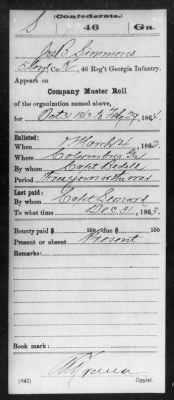 S (Confederate.) 46 Ga.
Simmons
Co. K, 46 Reg't Georgia Infantry.
Appears on
Company Muster Roll
of the organization named above,
for Oct 31 1863 to Feby 29, 1864.
Enlisted:
When March 4, 186
Where Columbus, Ga
By whom Capt
Period Three years or the war
Last paid:
By whom Capt Leonard
To what time Dec 31, 1863.
Bounty paid $ 100; due $ 100
Present or absent Present
Remarks:
Book mark:
(642) Copyist.